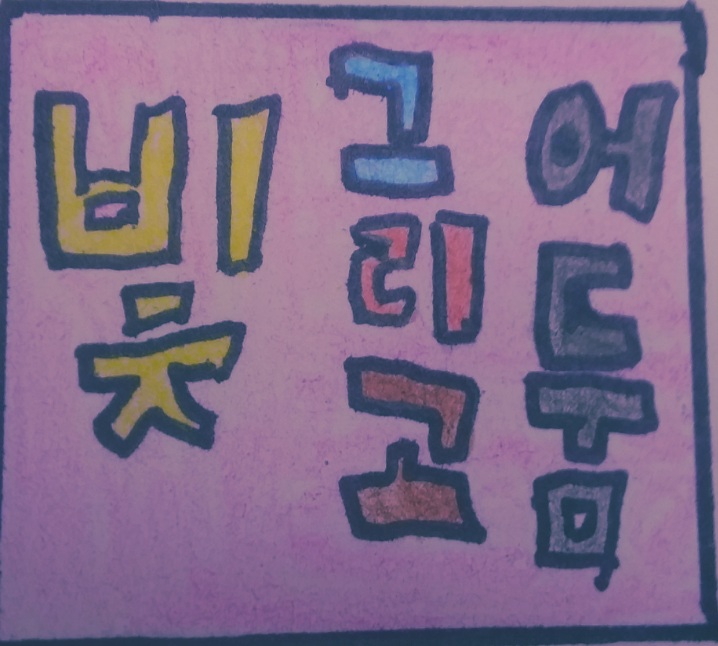 빛
그리고
어둠